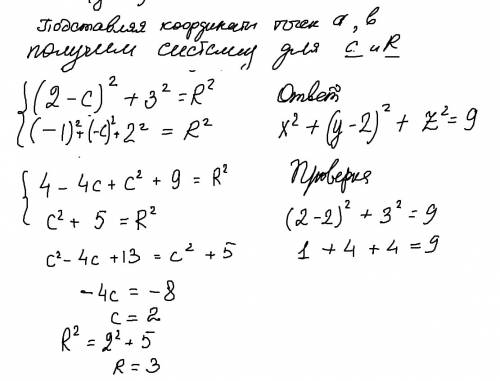 Подставляя координаты точек a, в
получим систему для c и R
(2-c)² + 3² = R²
(-1)² + (-c)² + 2² = R²
4 - 4c + c² + 9 = R²
c² + 5 = R²
c² - 4c + 13 = c² + 5
-4c = -8
c = 2
R² = 2² + 5
R = 3
Ответ
x² + (y-2)² + z² = 9
Проверка
(2-2)² + 3² = 9
1 + 4 + 4 = 9